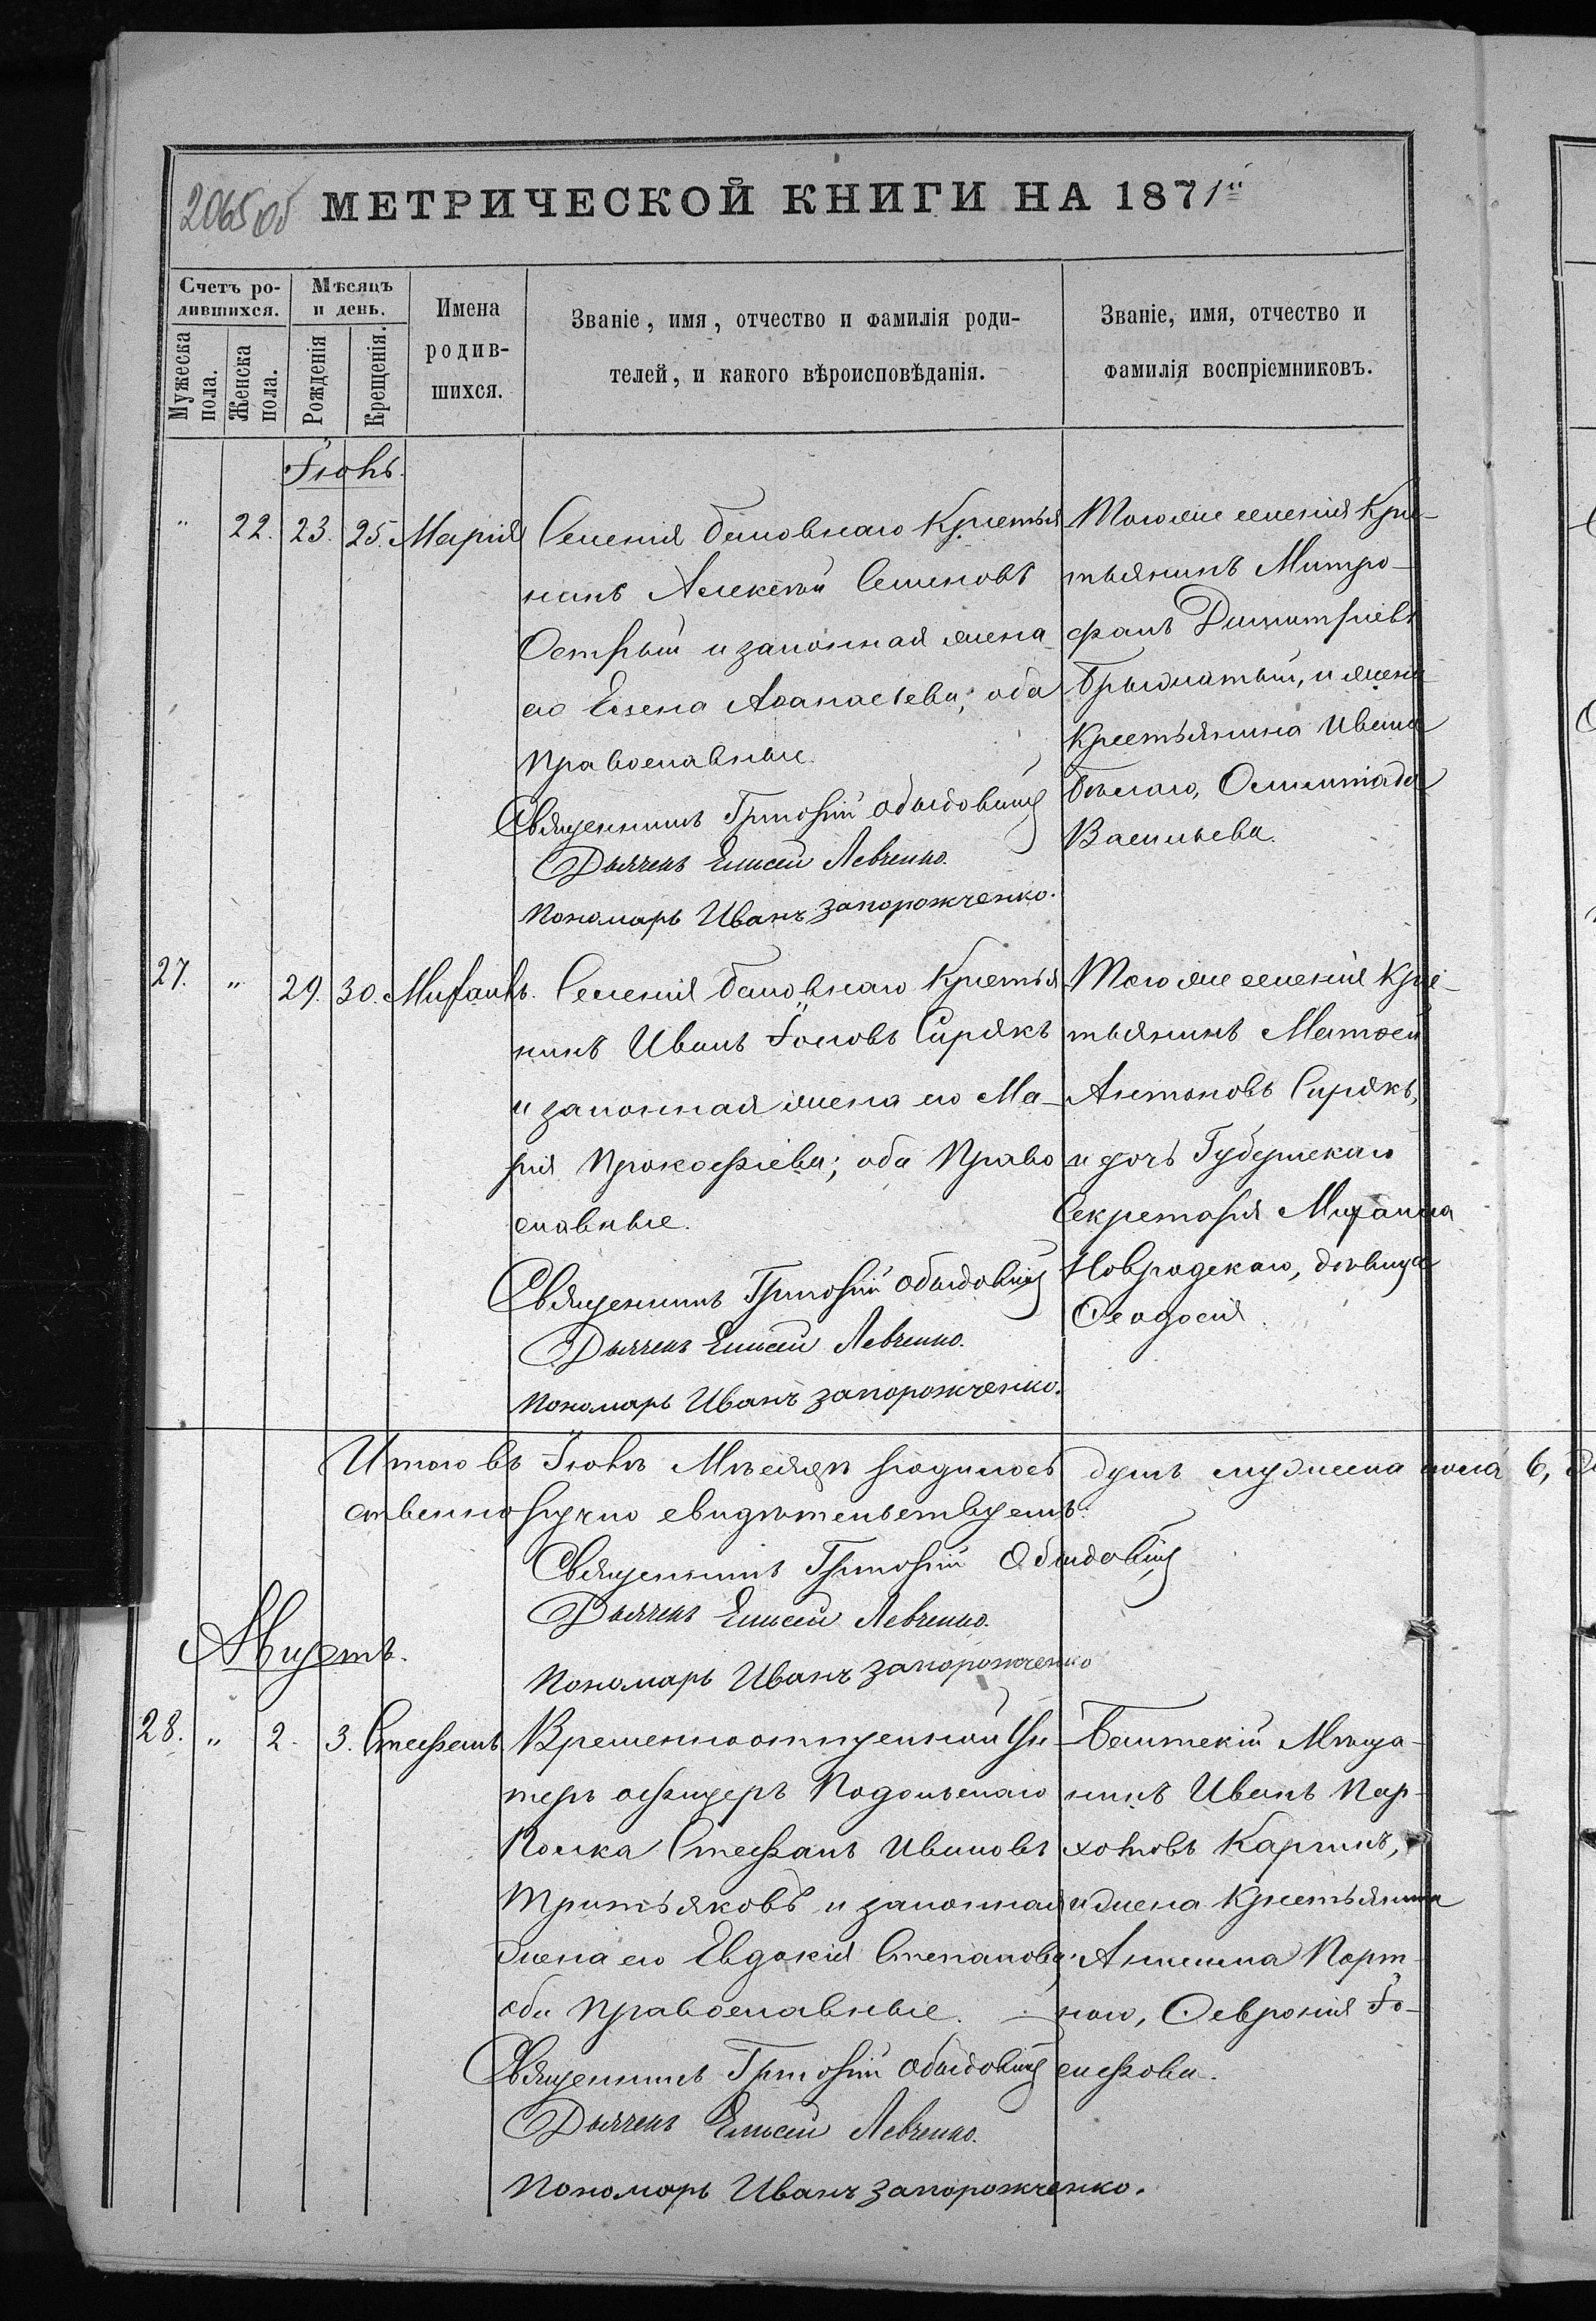 2065 об
МЕТРИЧЕСКОЙ КНИГИ НА 1871й
Счетъ ро-
дившихся.
Мужеска пола.
Женска пола.
Мѣсяцъ
и день.
Рожденія
Крещенія.
Имена
родив-
шихся.
Званіе, имя, отчество и фамилія роди-
телей, и какого вѣроисповѣданія.
Званіе, имя, отчество и
фамилія воспріемниковъ.
" 22. 23. 25. Марія
Селенія Крестья
нинъ Алексѣй Семеновъ
Острый и законная жена
его Елена Аѳанасьева; оба
Православные.
Священникъ Григорій
Дьячекъ Елисей Левченко.
Пономарь Иванъ Запорожченко.
Того же селенія Крес-
тьянинъ Митро-
фанъ Димитріевъ
и жена
Крестьянина Ивана
Бѣлаго,
Васильева.
27. " 29. 30. Михаилъ.
Селенія Крестья
нинъ Иванъ Сирякъ
и законная жена его Ма-
рія Прокофіева; оба Право
славные.
Священникъ Григорій
Дьячекъ Елисей Левченко.
Пономарь Иванъ Запорожченко.
Того же селенія Крес-
тьянинъ Матѳей
Антоновъ Сирякъ,
и дочь Губернскаго
Секретаря Михаила
дѣвица
Ѳеодосія.
Итого въ Мѣсяцѣ родилось душъ мужеска пола 6,
ственноручно свидѣтельствуемъ.
Священникъ Григорій
Дьячекъ Елисей Левченко.
Пономарь Иванъ Запорожченко
Августъ.
28. " 2. 3. Стефанъ
Временноотпускной Ун-
теръ офицеръ Подольскаго
Полка Стефанъ Ивановъ
Тритьяковъ и законная
жена его Евдокія Степанова;
оба Православные.
Священникъ Григорій
Дьячекъ Елисей Левченко.
Пономарь Иванъ Запорожченко.
Мѣща-
нинъ Иванъ Пар-
хомовъ
и жена Крестьянина
Порт-
ного, Ѳевронія Іо-
сифова.